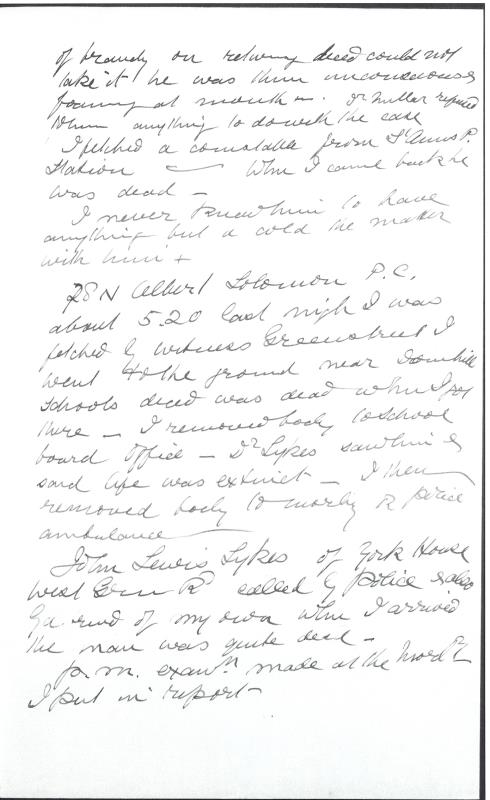 of brandy on returning deced could not
take it he was then unconscious &
foaming at mouth —. Dr Millar refused
to have anything to do with the case
I fetched a constable from St Anns R.
Station — When I came back he
was dead —
I never knew him to have
anything but a cold the matter
with him +
N Albert Solomon P.C.
about 5.20 last nigh I was
fetched by witness Greenstreet I
went to the ground near Downhills
Schools deced was dead when I got
there — I removed body to School
board office — Dr Sykes saw him &
said life was extinct — I then
removed body to morty R police
ambulance
John Lewis Sykes of York House
West Green R called by police & also
by a of my own when I arrived
the man was quite dead —
p. m. examn made at the
I put in report —